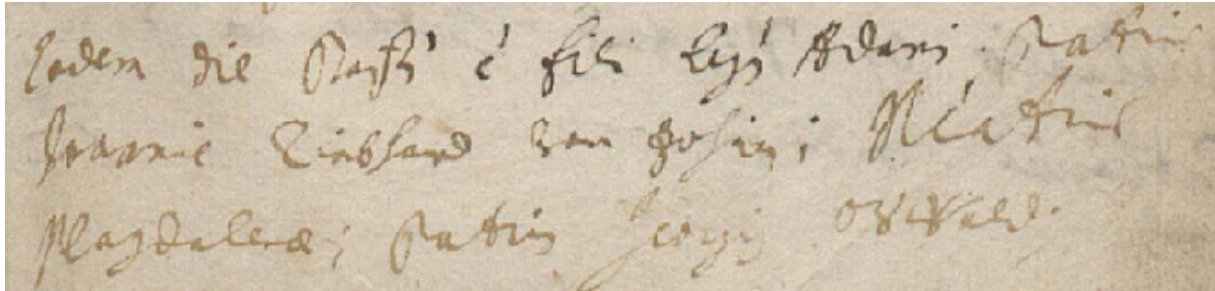 Eodem die Bapt' ê fili' legi' Adami Patris
Joannis Liebhard von ; Matris
Magdalenæ; Patrin Georgij Oswald.